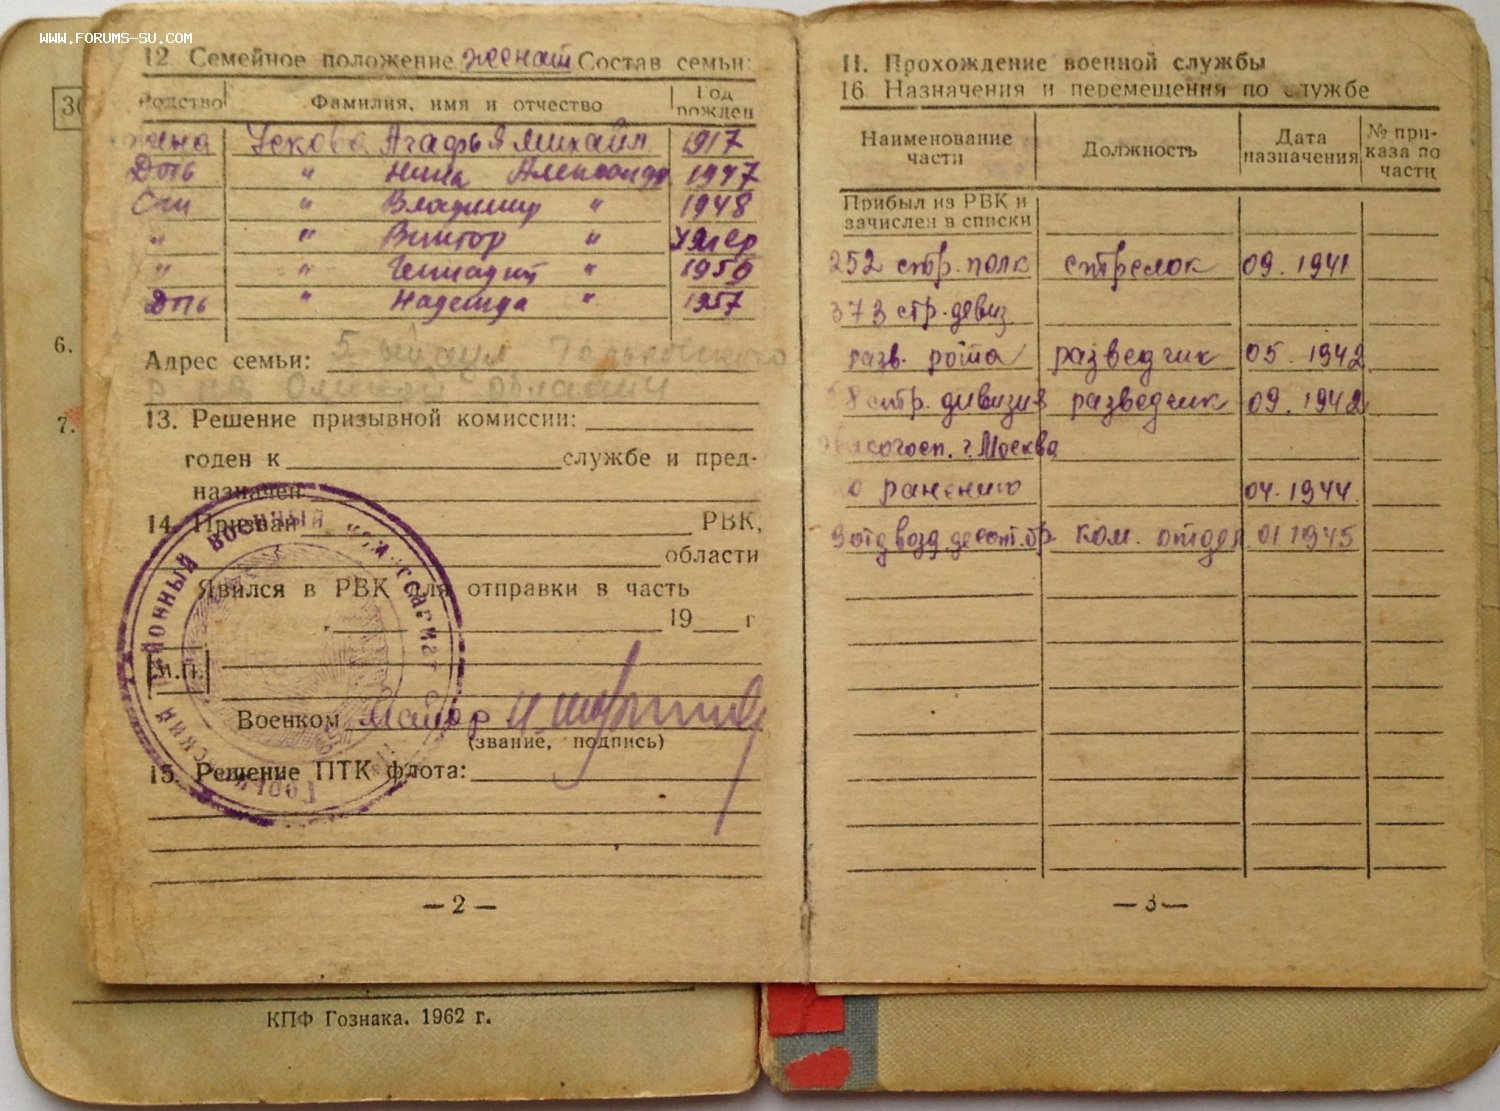 WWW.FORUMS-SU.COM
12. Семейное положение женат Состав семьи:
Родство Фамилия, имя и отчество Год рожден
Ускова Агафья Михайл 1917
Дочь " Нина Александр 1947
Сын " Владимир " 1948
" " Виктор " умер
" " Геннадий " 1950
Дочь " Надежда " 1957
6.
Адрес семьи:
Омской области
7.
13. Решение призывной комиссии:
годен к службе и пред-
назначен
14. Призван РВК,
области
Явился в РВК для отправки в часть
19 г
М.П.
Военком Майор
(звание, подпись)
15. Решение ПТК флота:
районный военный
— 2 —
КПФ Гознака. 1962 г.
II. Прохождение военной службы
16. Назначения и перемещения по службе
Наименование части Должность Дата назначения № при-каза по части
Прибыл из РВК и
зачислен в списки
252 стр. полк стрелок 09.1941
373 стр. девиз
разв. рота разведчик 05.1942
8 стр. дивизия разведчик 09.1942
г. Москва
по ранению 04.1944
9 отд возд десант. бр ком. отдел 01 1945
— 3 —